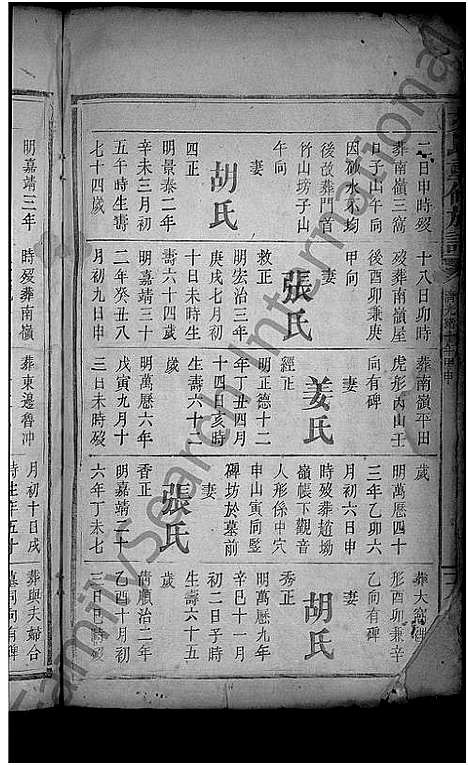 二日申時歿
葬南嶺三窩
日子山午向
因砍水不均
後改葬門首
竹山坊子山
午向
妻
胡氏
四正
明景泰二年
辛未三月初
五午時生壽
七十四歲
十八日卯時
歿葬南嶺屋
後酉卯兼庚
甲向
妻
張氏
救正
明宏治三年
庚戌七月初
十日未時生
壽六十四歲
明嘉靖三十
二年癸丑八
月初九日申
葬南嶺平田
虎形內山壬
向有碑
妻
姜氏
經正
明正德十二
年丁丑四月
十四日亥時
生壽六十二
歲
明萬歷六年
戊寅九月十
三日未時歿
歲
明萬歷四十
三年乙卯六
月初六日申
時歿葬趙坳
嶺帳下觀音
人形係中穴
申山寅向監
碑坊於墓前
妻
張氏
香正
明嘉靖二十
六年丁未七
形酉卯兼辛
乙向有碑
妻
胡氏
秀正
明萬歷九年
辛巳十一月
初二日子時
生壽六十五
歲
清順治二年
乙酉十月初
明嘉靖三年
時歿葬南嶺
葬東邊魯沖
月初十日戌
葬與夫婦合
墓同向有碑